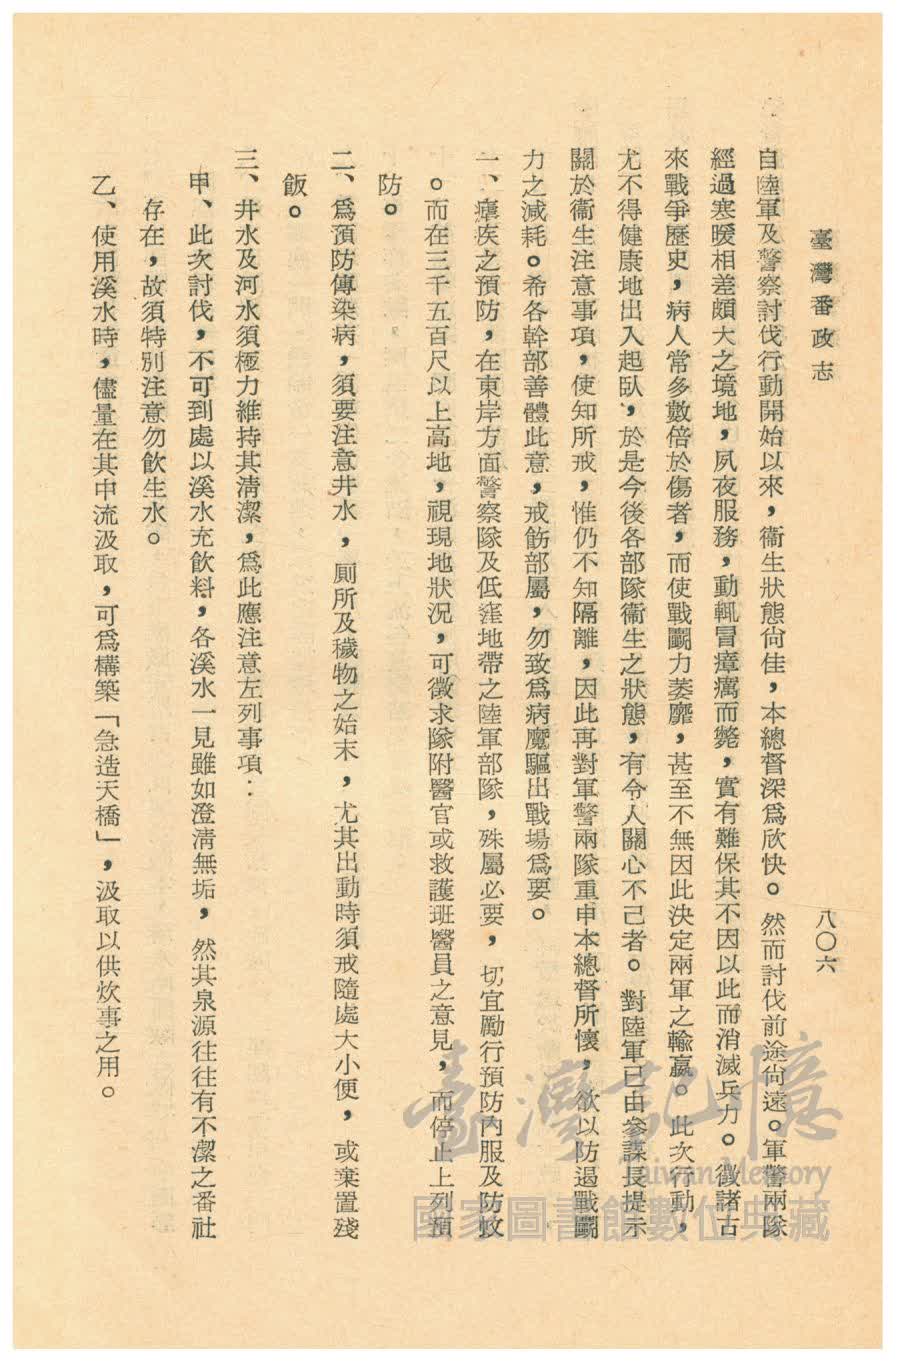 臺灣番政志
八〇六
自陸軍及警察討伐行動開始以來，衞生狀態尙佳，本總督深爲欣快。然而討伐前途尙遠。軍警兩隊
經過寒暖相差頗大之境地，夙夜服務，動輒冒瘴癘而斃，實有難保其不因以此而消滅兵力。徵諸古
來戰爭歷史，病人常多數倍於傷者，而使戰鬭力萎靡，甚至不無因此決定兩軍之輸嬴。此次行動，
尤不得健康地出入起臥，於是今後各部隊衞生之狀態，有令人關心不己者。對陸軍已由參謀長提示
關於衞生注意事項，使知所戒，惟仍不知隔離，因此再對軍警兩隊重申本總督所懷，欲以防遏戰鬭
力之減耗。希各幹部善體此意，戒飭部屬，勿致爲病魔驅出戰場爲要。
一、瘧疾之預防，在東岸方面警察隊及低窪地帶之陸軍部隊，殊屬必要，切宜勵行預防內服及防蚊
。而在三千五百尺以上高地，視現地狀況，可徵求隊附醫官或救護班醫員之意見，而停止上列預
防。
二、爲預防傳染病，須要注意井水，厠所及穢物之始末，尤其出動時須戒隨處大小便，或棄置殘
飯。
三、井水及河水須極力維持其淸潔，爲此應注意左列事項：
甲、此次討伐，不可到處以溪水充飮料，各溪水一見雖如澄淸無垢，然其泉源往往有不潔之番社
存在，故須特別注意勿飮生水。
乙、使用溪水時，儘量在其中流汲取，可爲構築「急造天橋」，汲取以供炊事之用。
臺灣記憶
Taiwan Memory
國家圖書館數位典藏